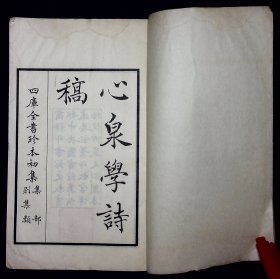 心泉學詩
稿
四庫全書珍本初集集部
別集類